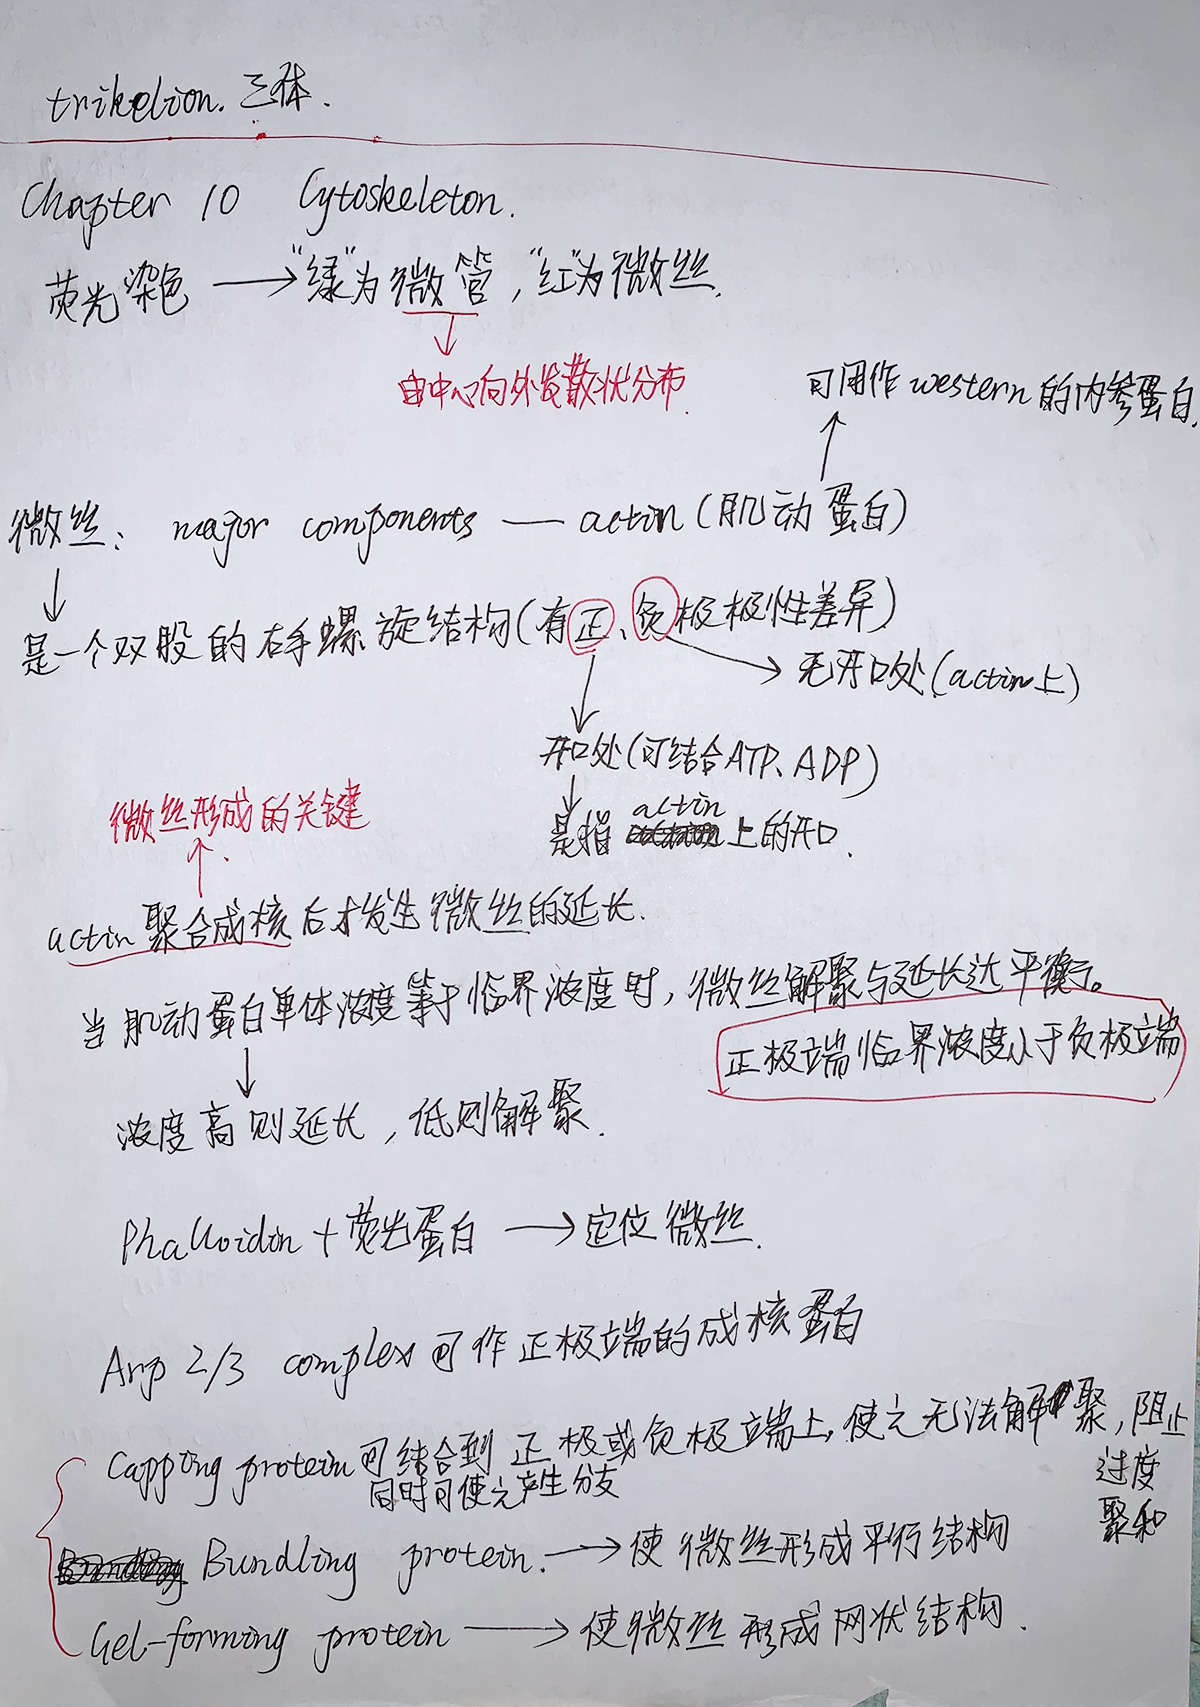 trikelion. 三体.
Chapter 10 Cytoskeleton.
荧光染色 → "绿"为微管, "红"为微丝.
由中心向外发散状分布.
可用作western的内参蛋白.
微丝: major components — actin (肌动蛋白)
是一个双股的右手螺旋结构(有正、负极极性差异)
无开口处(actin上)
开口处(可结合ATP、ADP)
是指 actin 上的开口.
微丝形成的关键
actin聚合成核后才发生微丝的延长.
当肌动蛋白单体浓度等于临界浓度时, 微丝解聚与延长达平衡。
正极端临界浓度小于负极端
浓度高则延长, 低则解聚.
Phalloidin + 荧光蛋白 → 定位微丝.
Arp 2/3 complex可作正极端的成核蛋白
Capping protein可结合到正极或负极端上, 使之无法解聚, 阻止
过度
聚和
同时可使之产生分支
Bundling protein. → 使微丝形成平行结构
Gel-forming protein → 使微丝形成网状结构.